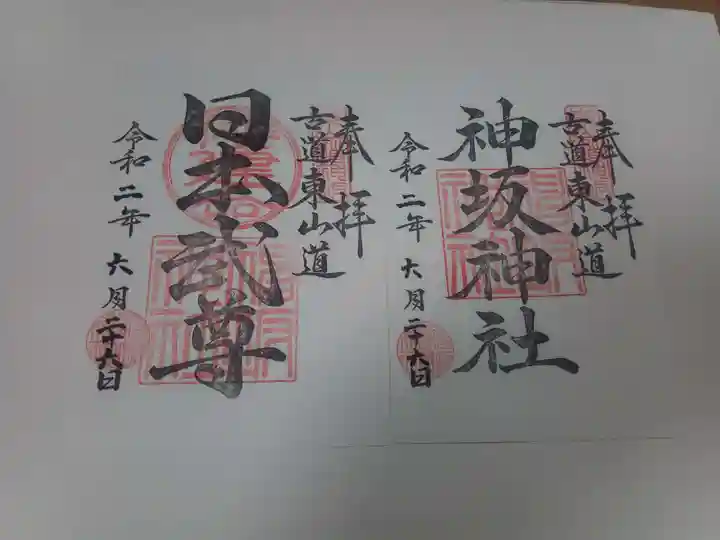 奉拝
古道東山道
神坂神社
令和二年 六月二十六日
奉拝
古道東山道
日本武尊
令和二年 六月二十六日